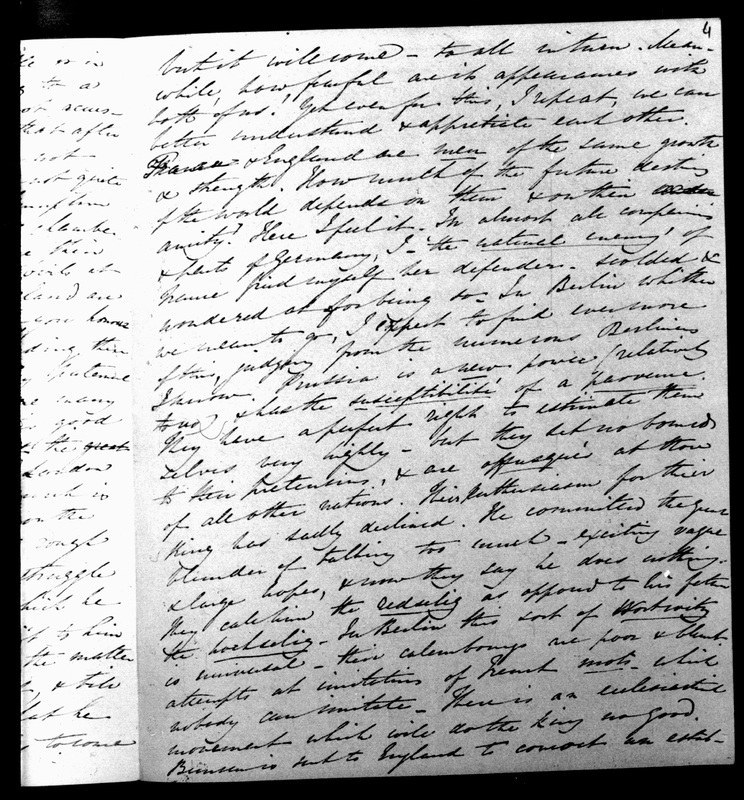 4
but it will come – to all in turn. Mean-
while, how fearful are its appearances with
both of us! Yet even for this, I repeat, we can
better understand & appreciate each other.
France & England are men of the same growth
& strength. How much of the future destiny
of the world depends on them & on their
amity! Here I feel it. In almost all companies
& parts of Germany, I – "the natural enemy" of
France find myself her defender – scolded &
wondered at for being so – In Berlin whither
we mean to go, I expect to find even more
of this, judging from the numerous Berliners
I know. Prussia is a new power (relatively
to us) & has the susceptibilité of a parvenu.
They have a perfect right to estimate them
selves very highly – but they set no bounds
to their pretensions, & are offusqué at those
of all other nations. Their enthusiasm for their
King has sadly declined. He committed the great
blunder of talking too much – exciting vague
& large hopes, & now they say he does nothing.
They call him the redselig as opposed to his father
the hochselig – In Berlin this sort of
is universal – their calembourgs are poor & blunt
attempts at imitation of French mots – which
nobody can imitate – There is an ecclesiastical
movement which will do the King no good.
Bunsen is sent to England to concoct an estab-
like or in
to a
not accus-
that after
not
not quite
chamber
their
land are
you honour
ding them
many
good
the great
London
much is
on the
rough
struggle
which he
it to him
the matter
that he
to come